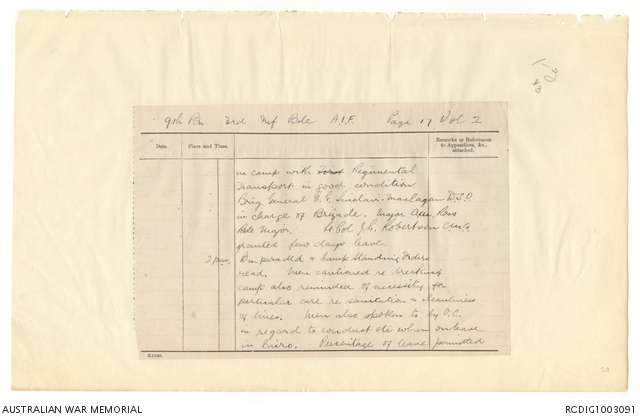 9th Bn 3rd Inf Bde A.I.F. Page 17 Vol 2
Date. Place and Time. Remarks or References to Appendices, &c., attached.
in camp with Regimental
Transport in good condition
Brig General E. G. Sinclair-Maclagan D.S.O
in charge of Brigade. Major Ross
Bde Major. Lt Col J.C. Robertson C.M.G
granted few days leave.
2 pm. Bn paraded & Camp Standing Orders
read. Men cautioned re breaking
camp also reminded of necessity for
particular care re sanitation & cleanliness
of lines. Men also spoken to by O.C.
in regard to conduct etc when on leave
in Cairo. Percentage of leave permitted
AUSTRALIAN WAR MEMORIAL
RCDIG1003091